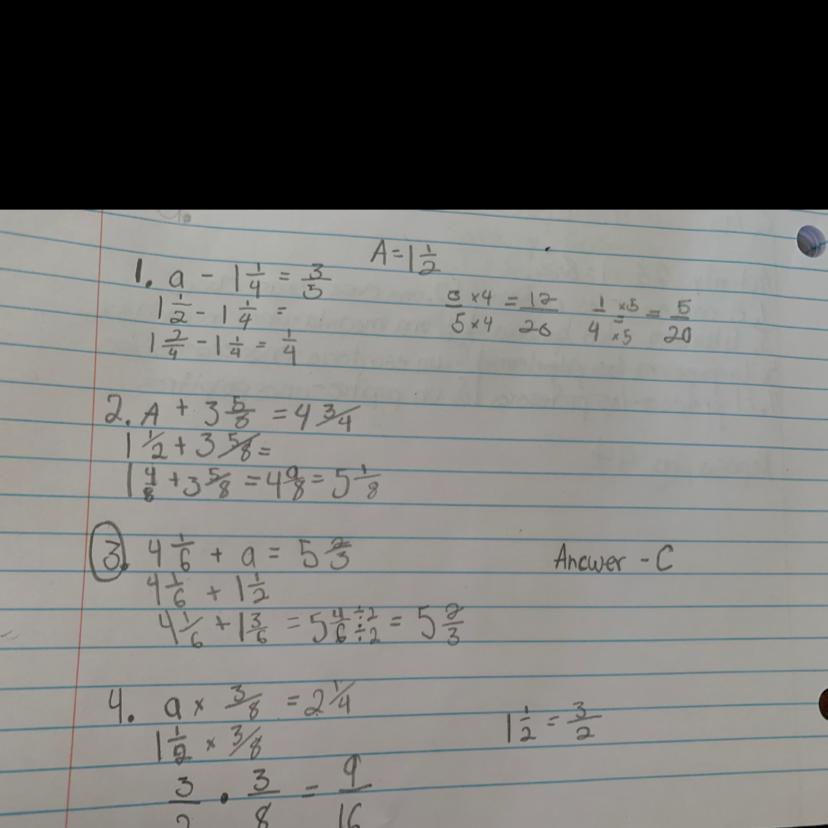 A = 1 1/2
1. a - 1 1/4 = 3/5
1 1/2 - 1 1/4 =
1 2/4 - 1 1/4 = 1/4
3 ×4 / 5 ×4 = 12/20
1 ×5 / 4 ×5 = 5/20
2. A + 3 5/8 = 4 3/4
1 1/2 + 3 5/8 =
1 4/8 + 3 5/8 = 4 9/8 = 5 1/8
3. 4 1/6 + a = 5 2/3
4 1/6 + 1 1/2
4 1/6 + 1 3/6 = 5 4/6 ÷2/÷2 = 5 2/3
Ancwer - C
4. a × 3/8 = 2 1/4
1 1/2 × 3/8
1 1/2 = 3/2
3/2 • 3/8 = 9/16